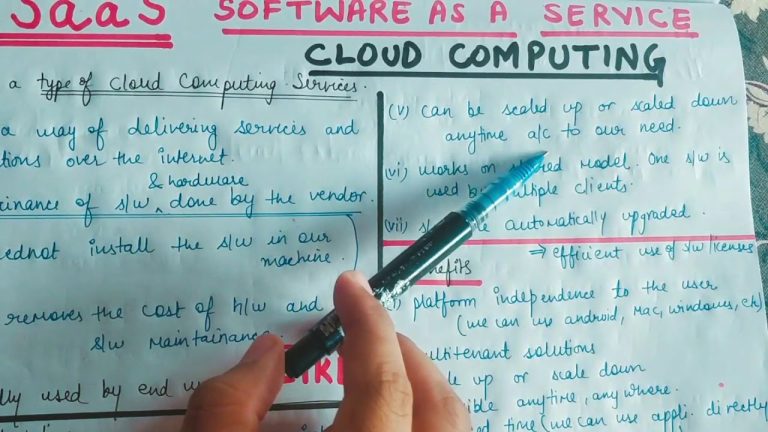 SaaS SOFTWARE AS A SERVICE
CLOUD COMPUTING
a type of Cloud Computing Services.
a way of delivering services and
tions over the internet.
& hardware
of s/w ^ done by the vendor.
install the s/w in our
machine.
removes the cost of h/w and
s/w maintainance
used by end
(v) can be scaled up or scaled down
anytime a/c to our need.
(vi) works on model. One s/w is
used multiple clients.
(vii) automatically upgraded.
⇒ efficient use of s/w licenses
platform independence to the user
(we can use android, Mac, windows, etc)
solutions
up or scale down
anytime, anywhere.
time (we can use appli. directly